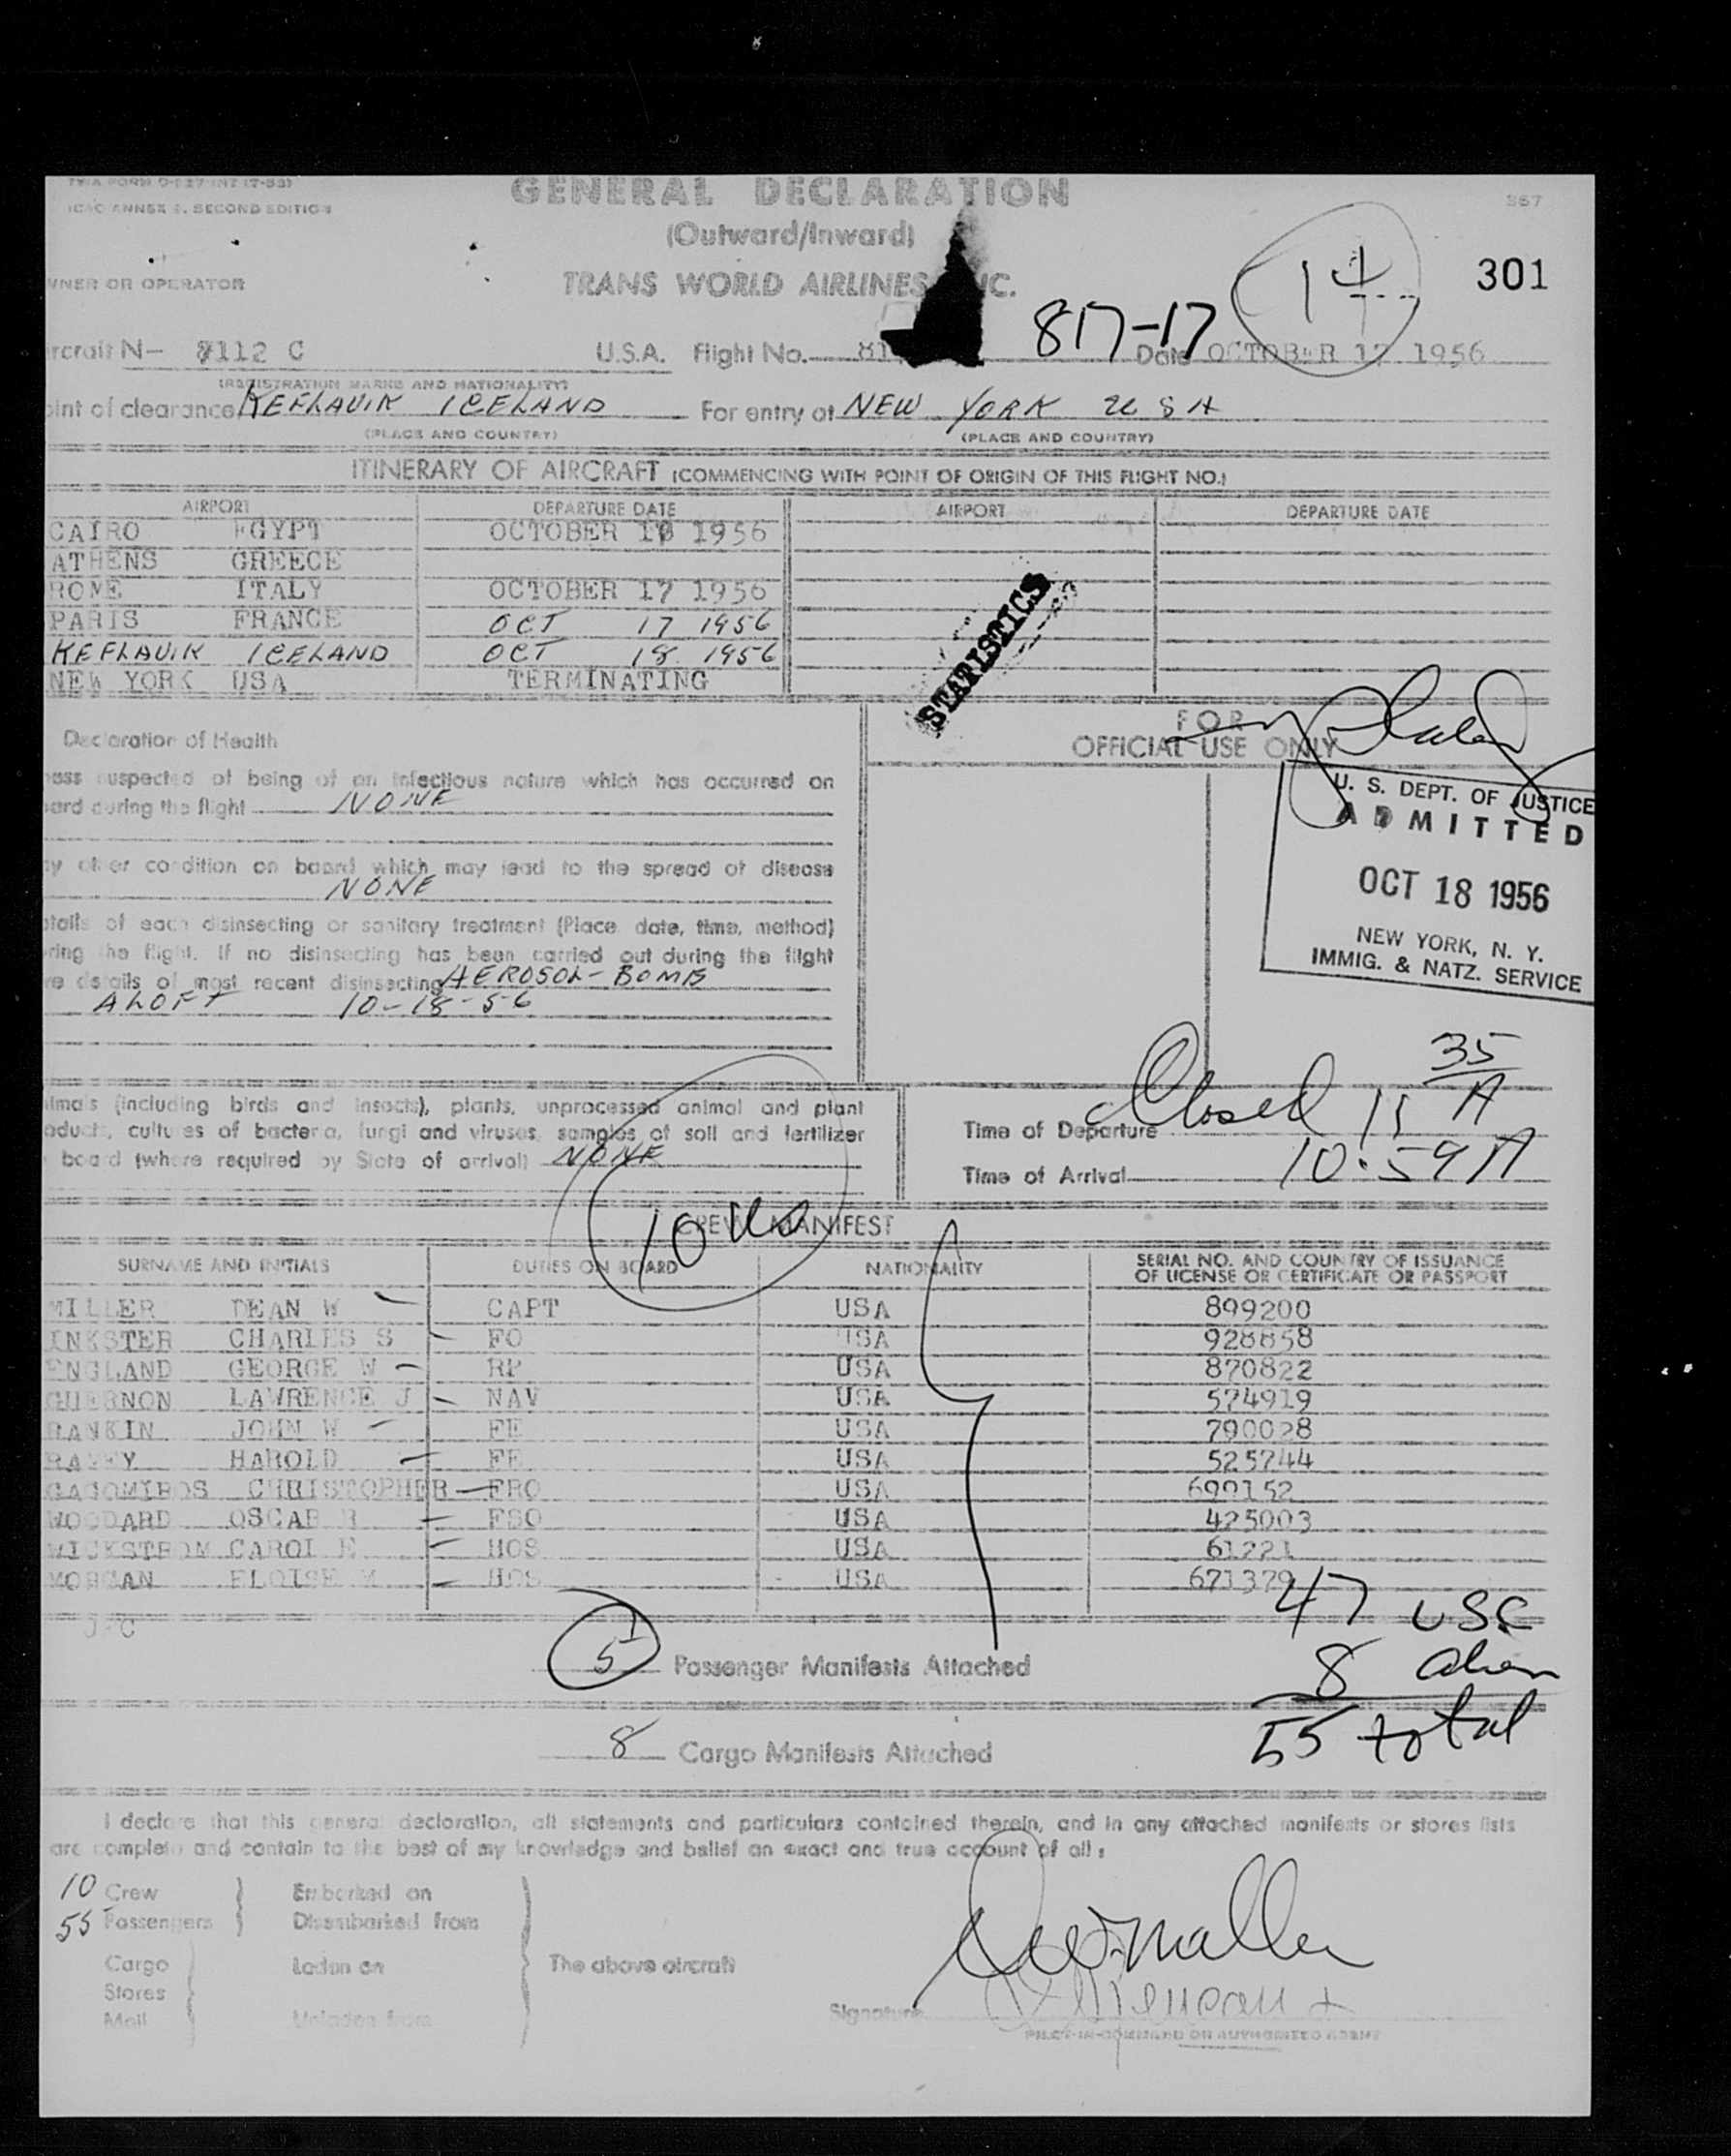 TWA FORM
ICAO ANNEX 9. SECOND EDITION
GENERAL DECLARATION
(Outward/Inward)
567
WNER OR OPERATOR
TRANS WORLD AIRLINES NC.
301
ircraft N- 8112 C U.S.A. Flight No. 81 817-17 Date OCTOBER 17 1956
(REGISTRATION MARKS AND NATIONALITY)
oint of clearance KEFLAVIK ICELAND For entry at NEW YORK USA
(PLACE AND COUNTRY) (PLACE AND COUNTRY)
ITINERARY OF AIRCRAFT (COMMENCING WITH POINT OF ORIGIN OF THIS FLIGHT NO.)
AIRPORT DEPARTURE DATE AIRPORT DEPARTURE DATE
CAIRO EGYPT OCTOBER 1956
ATHENS GREECE
ROME ITALY OCTOBER 17 1956
PARIS FRANCE OCT 17 1956
KEFLAVIK ICELAND OCT 18 1956
NEW YORK USA TERMINATING
STATISTICS
FOR
OFFICIAL USE ONLY
Declaration of Health
ness suspected of being of an infectious nature which has occurred on
oard during the flight NONE
ny other condition on board which may lead to the spread of disease
NONE
etails of each disinsecting or sanitary treatment (Place date, time, method)
uring the flight. If no disinsecting has been carried out during the flight
ve details of most recent disinsecting AEROSOL-BOMB
ALOFT 10-18-56
U. S. DEPT. OF JUSTICE
ADMITTED
OCT 18 1956
NEW YORK, N. Y.
IMMIG. & NATZ. SERVICE
nimals (including birds and insects), plants, unprocessed animal and plant
oducts, cultures of bacteria, fungi and viruses, samples of soil and fertilizer
board (where required by State of arrival) NONE
Time of Departure Closed 11 35 A
Time of Arrival 10:59 A
10 us
CREW MANIFEST
SURNAME AND INITIALS DUTIES ON BOARD NATIONALITY SERIAL NO. AND COUNTRY OF ISSUANCE
OF LICENSE OR CERTIFICATE OR PASSPORT
MILLER DEAN W CAPT USA 899200
INKSTER CHARLES S FO USA 928858
ENGLAND GEORGE W RP USA 870822
GUERNON LAWRENCE J NAV USA 574919
RANKIN JOHN W FE USA 790028
HAROLD FE USA 525744
CHRISTOPHER FRO USA 699152
WOODARD OSCAR FSO USA 425003
WICKSTROM CAROL E HOS USA 61221
MORGAN ELOISE M HOS USA 671379
47 USC
5 Passenger Manifests Attached
8 alien
55 total
8 Cargo Manifests Attached
I declare that this general declaration, all statements and particulars contained therein, and in any attached manifests or stores lists
are complete and contain to the best of my knowledge and belief an exact and true account of all:
10 Crew Embarked on
55 Passengers Disembarked from
Cargo Laden on The above aircraft
Stores
Mail Unladen from
Signature
PILOT-IN-COMMAND OR AUTHORIZED AGENT